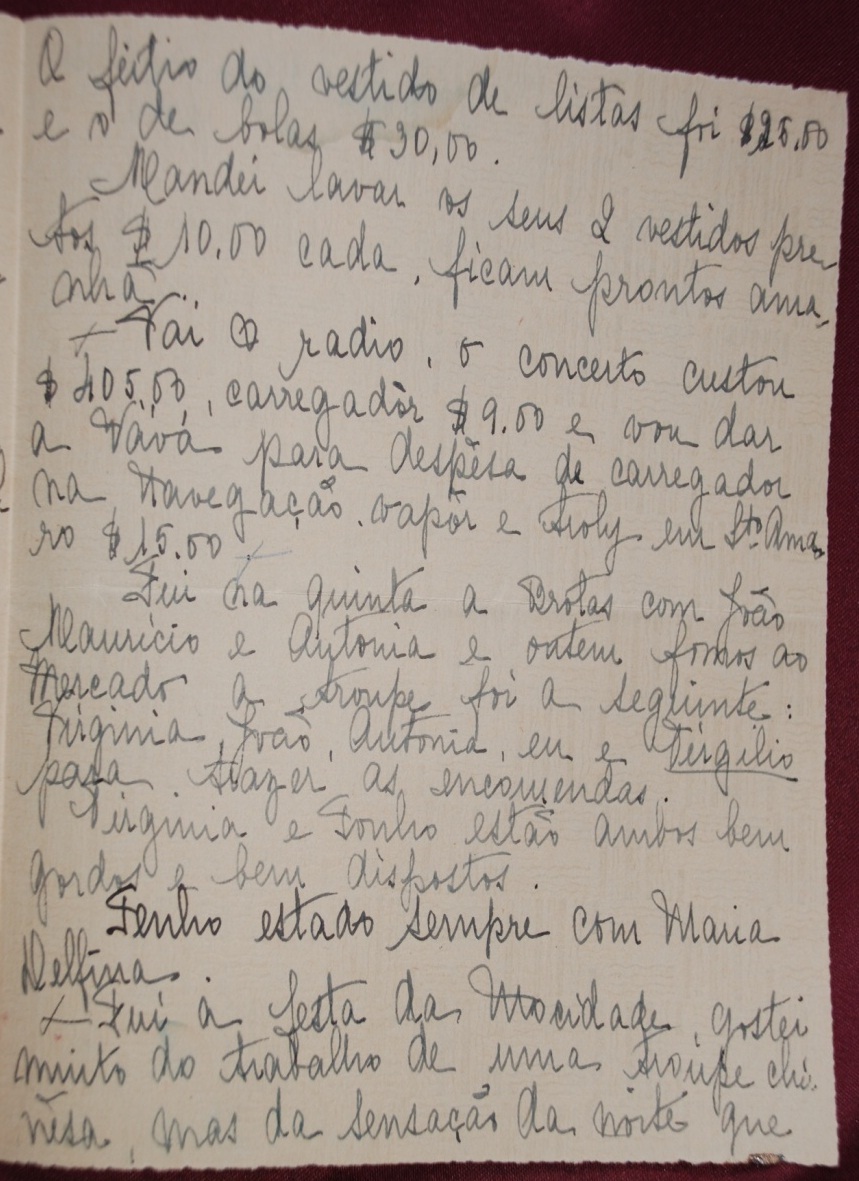 O feitio do vestido de listas foi $25,00
e o de bolas $30,00.
Mandei lavar os seus 2 vestidos pre-
tos $10.00 cada, ficam prontos ama-
nhã.
Vai o radio, o concerto custou
$405,00, carregadôr $9.00 e vou dar
a Vává para despêsa de carregador
na Navegação, vapôr e troly em Sto. Ama-
ro $15.00
Fui na quinta a Brotas com João
Mauricio e Antonia e ontem fomos ao
Mercado a troupe foi a seguinte:
Virginia, João, Antonia, eu e Virgilio
para trazer as encomendas.
Virginia e Tonho estão ambos bem
gordos e bem dispostos.
Tenho estado sempre com Maria
Delfina.
Fui a festa da Mocidade, gostei
muito do trabalho de uma troupe chi-
nêsa, mas da sensação da noite que